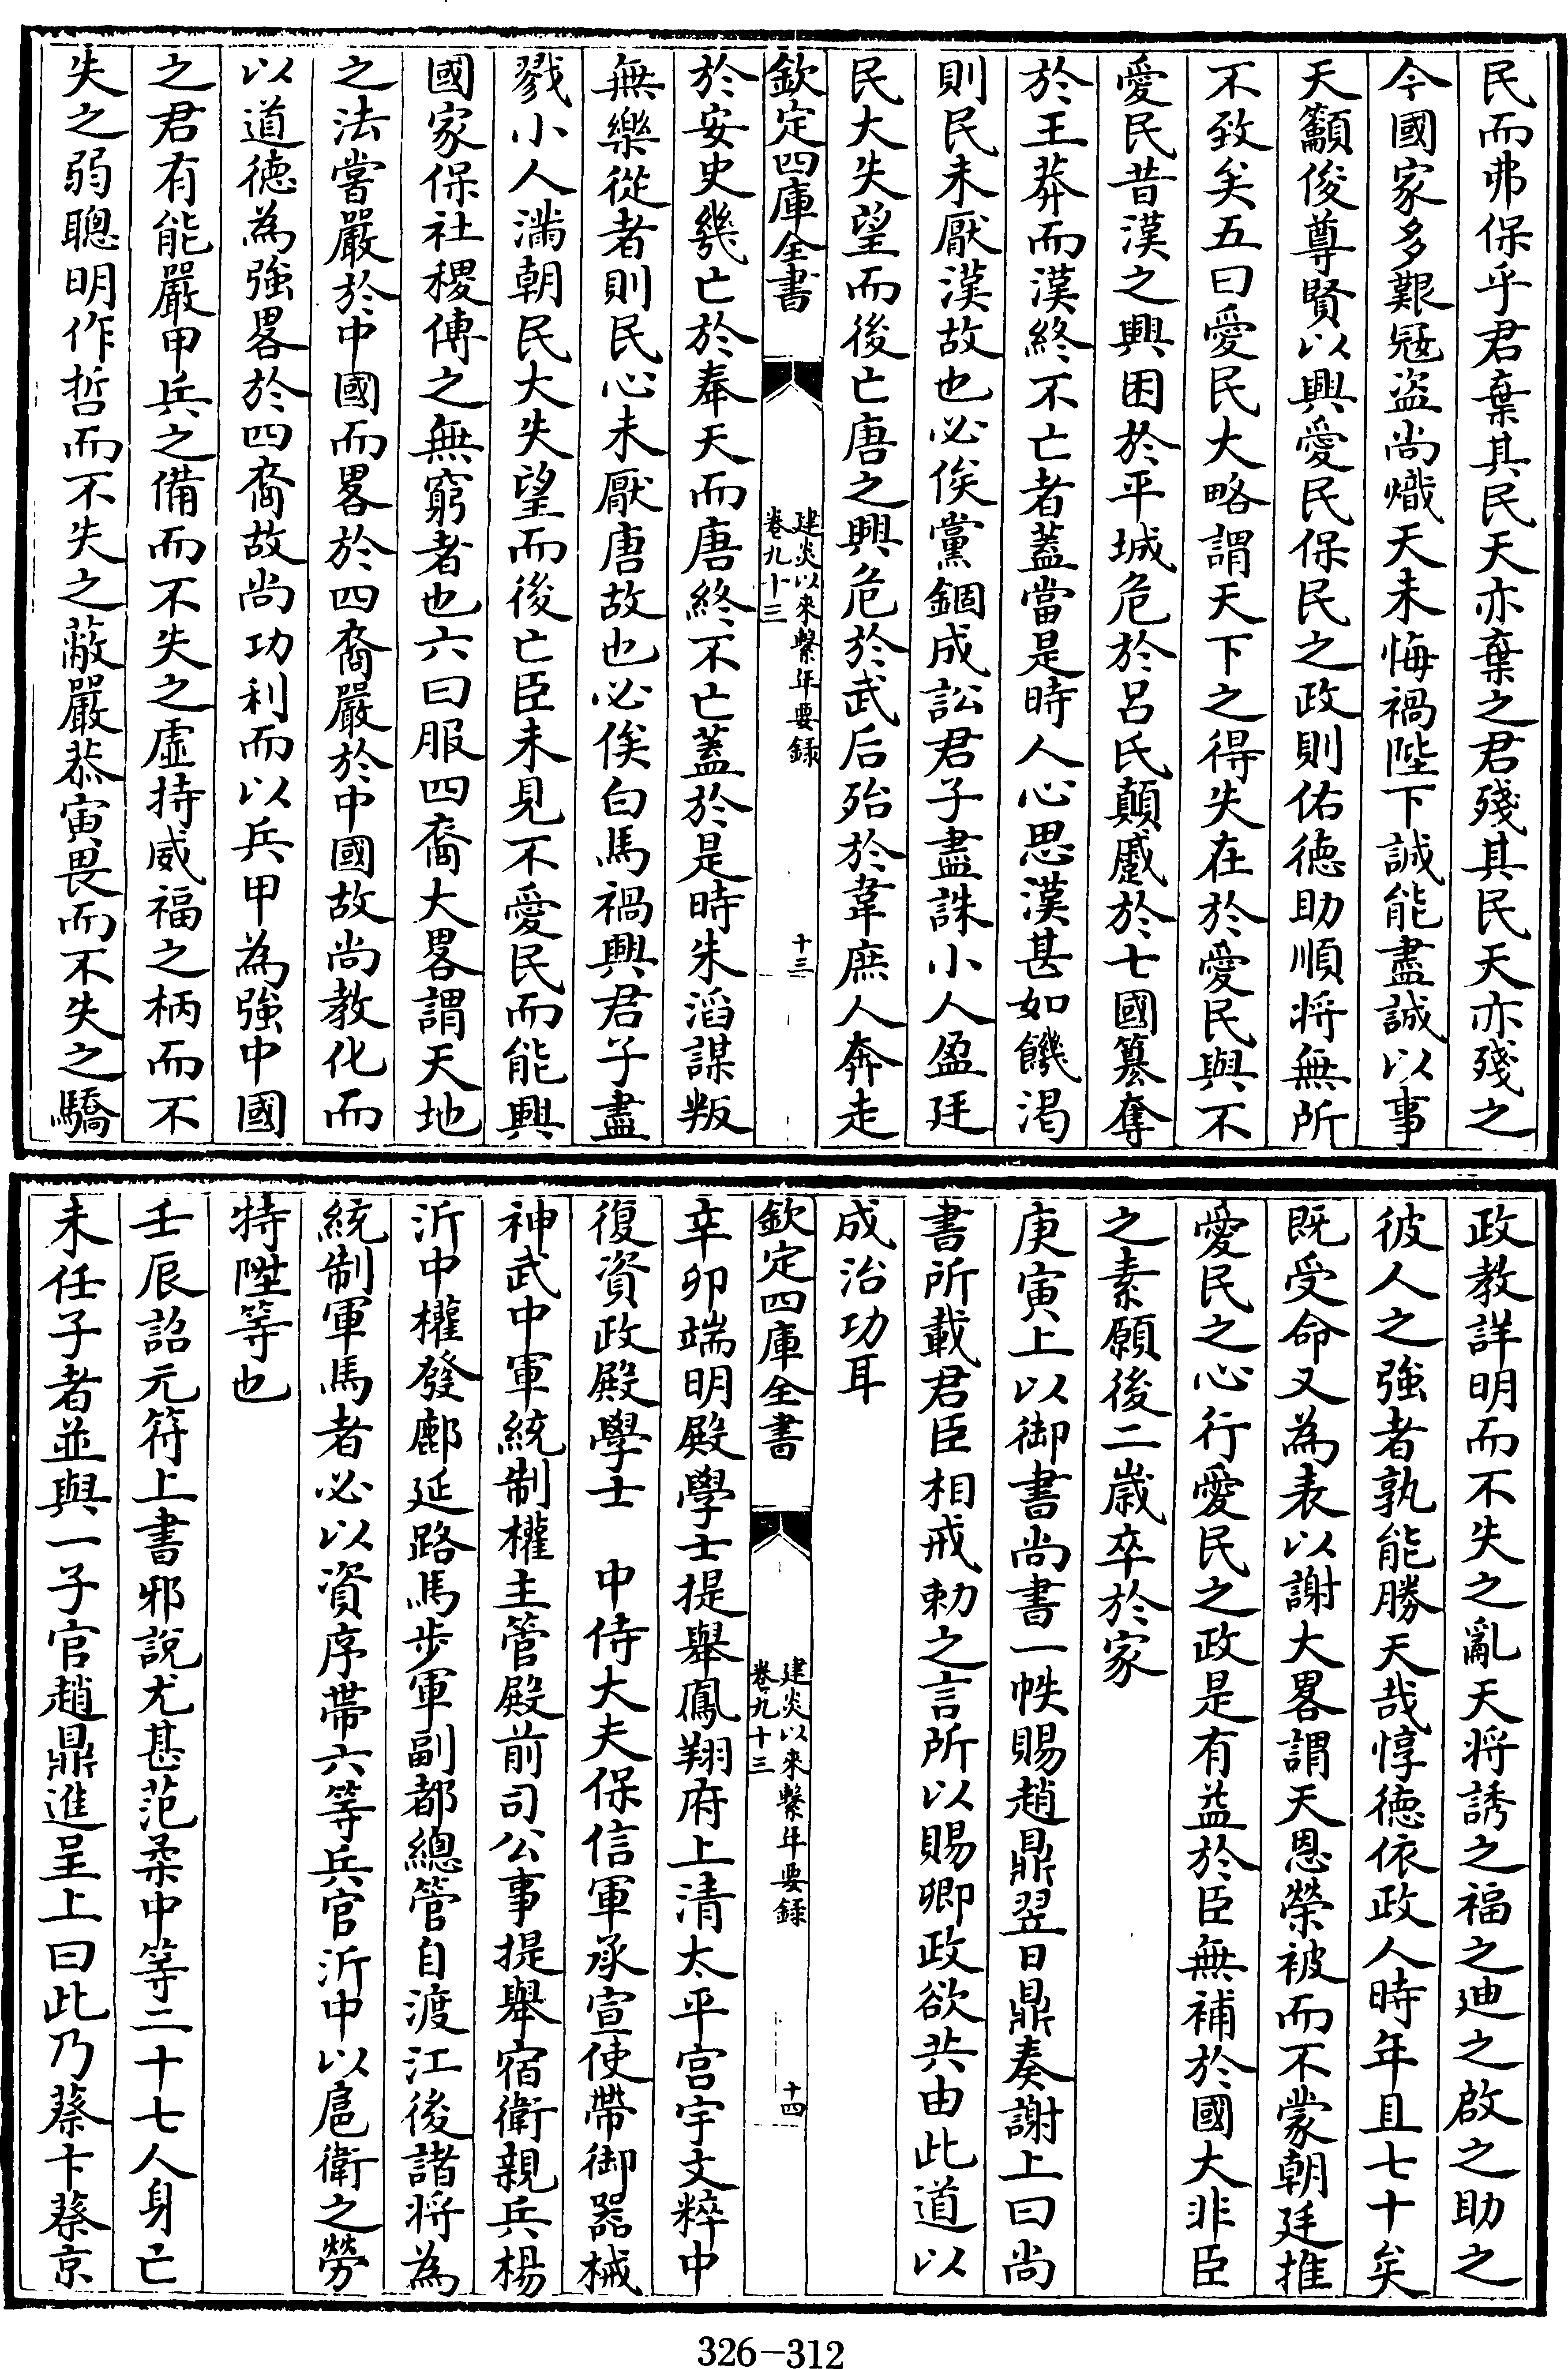 民而弗保乎君棄其民天亦棄之君殘其民天亦殘之
今國家多艱冦盗尚熾天未悔禍陛下誠能盡誠以事
天籲俊尊賢以興愛民保民之政則佑徳助順将無所
不致矣五曰愛民大略謂天下之得失在於愛民與不
愛民昔漢之興困於平城危於呂氏顛蹙於七國簒奪
於王莽而漢終不亡者蓋當是時人心思漢甚如饑渇
則民未厭漢故也必俟黨錮成訟君子盡誅小人盈廷
民大失望而後亡唐之興危於武后殆於韋庶人奔走
欽定四庫全書
建炎以來繫年要録
卷九十三
十三
於安史幾亡於奉天而唐終不亡蓋於是時朱滔謀叛
無樂從者則民心未厭唐故也必俟白馬禍興君子盡
戮小人滿朝民大失望而後亡臣未見不愛民而能興
國家保社稷傳之無窮者也六曰服四裔大畧謂天地
之法嘗嚴於中國而畧於四裔嚴於中國故尚教化而
以道徳為強畧於四裔故尚功利而以兵甲為強中國
之君有能嚴甲兵之備而不失之虚持威福之柄而不
失之弱聰明作哲而不失之蔽嚴恭寅畏而不失之驕
政教詳明而不失之亂天将誘之福之廸之啟之助之
彼人之強者孰能勝天哉惇徳依政人時年且七十矣
既受命又為表以謝大畧謂天恩榮被而不蒙朝廷推
愛民之心行愛民之政是有益於臣無補於國大非臣
之素願後二歲卒於家
庚寅上以御書尚書一帙賜趙鼎翌日鼎奏謝上曰尚
書所載君臣相戒勅之言所以賜卿政欲共由此道以
成治功耳
欽定四庫全書
建炎以來繫年要録
卷九十三
十四
辛卯端明殿學士提舉鳳翔府上清太平宫宇文粹中
復資政殿學士　中侍大夫保信軍承宣使帶御器械
神武中軍統制權主管殿前司公事提舉宿衛親兵楊
沂中權發鄜延路馬步軍副都總管自渡江後諸将為
統制軍馬者必以資序帶六等兵官沂中以扈衛之勞
特陞等也
壬辰詔元符上書邪說尤甚范柔中等二十七人身亡
未任子者並與一子官趙鼎進呈上曰此乃蔡卞蔡京
326—312